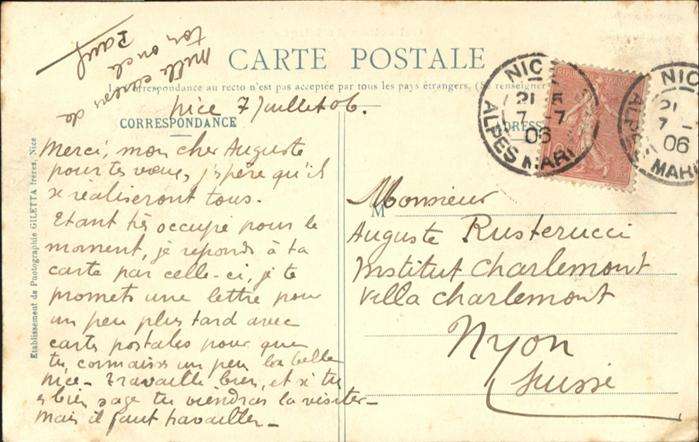 mille caresses de
ton oncle
Paul
CARTE POSTALE
La correspondance au recto n'est pas acceptée par tous les pays étrangers, (Se renseigner
Nice 7 Juillet 06.
CORRESPONDANCE
ADRESSE
NICE
21 5
7 -7
06
ALPES MARI
NIC
21
7
06
MARI
Merci, mon cher Auguste
pour tes vœux, j'espère qu'il
se realiseront tous.
Etant très occupé pour le
moment, je reponds à ta
carte par celle-ci, je te
promets une lettre pour
un peu plus tard avec
cartes postales pour que
tu connaisses un peu la belle
Nice - Travaille bien, et si tu
es bien sage tu viendras la visiter -
Mais il faut travailler -
M Monsieur
Auguste Rusterucci
Institut Charlemont
Villa Charlemont
Nyon
Suisse
Etablissement de Photographie GILETTA frères, Nice